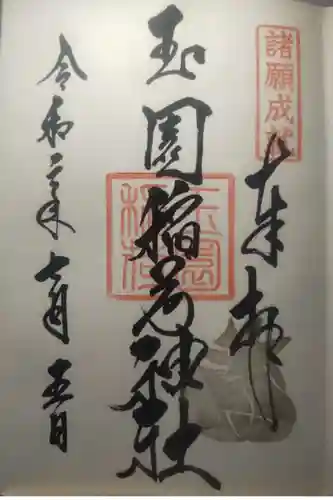 諸願成就
奉拝
玉圀稲荷神社
令和二年七月五日